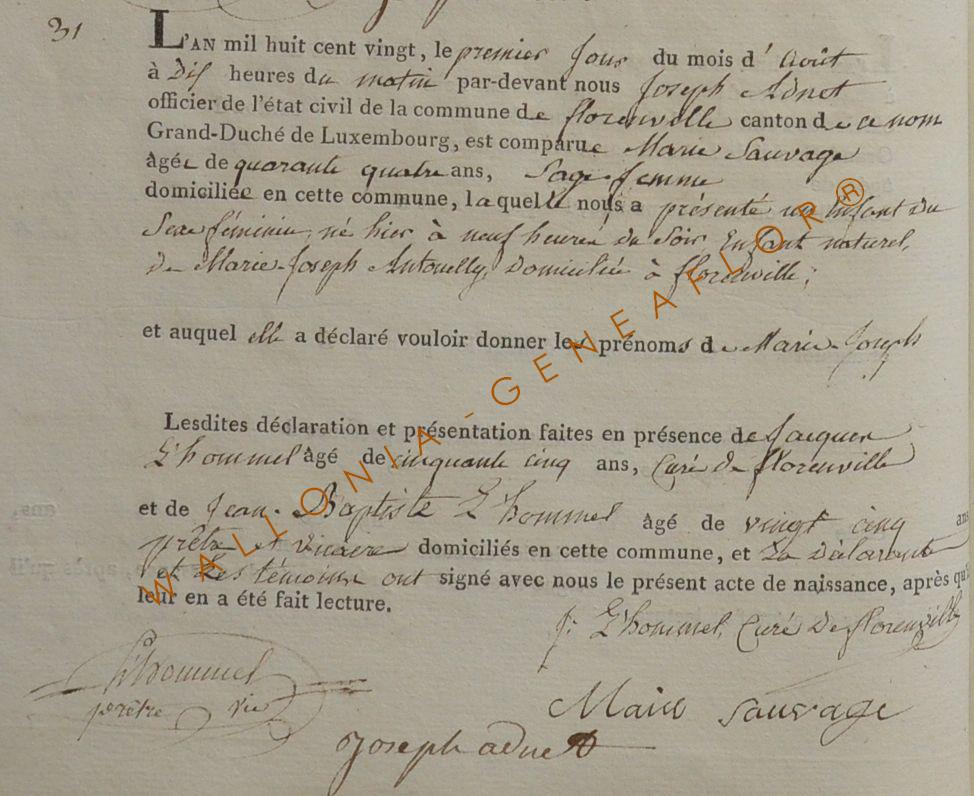 31
L'AN mil huit cent vingt, le premier jour du mois d'Août
à Dis heures du matin par-devant nous Joseph Adnet
officier de l'état civil de la commune de florenville canton de ce nom
Grand-Duché de Luxembourg, est comparue Marie Sauvage
âgée de quarante quatre ans, Sage-femme
domiciliée en cette commune, laquelle nous a présenté un Enfant du
Sexe féminin, né hier à neuf heures du Soir, Enfant naturel,
de Marie-Joseph Antouelly, Domiciliée à florenville;
et auquel elle a déclaré vouloir donner les prénoms de Marie-Joseph
Lesdites déclaration et présentation faites en présence de Jacques
L'hommel âgé de cinquante cinq ans, Curé de florenville
et de Jean-Baptiste L'hommel âgé de vingt cinq ans
prêtre et vicaire domiciliés en cette commune, et La Déclarante
et Les témoins ont signé avec nous le présent acte de naissance, après qu'il
leur en a été fait lecture.
J: L'hommel, Curé De florenville
L'hommel
prêtre vic
Marie Sauvage
Joseph adnet
WALLONIA-GENEAFLOR®